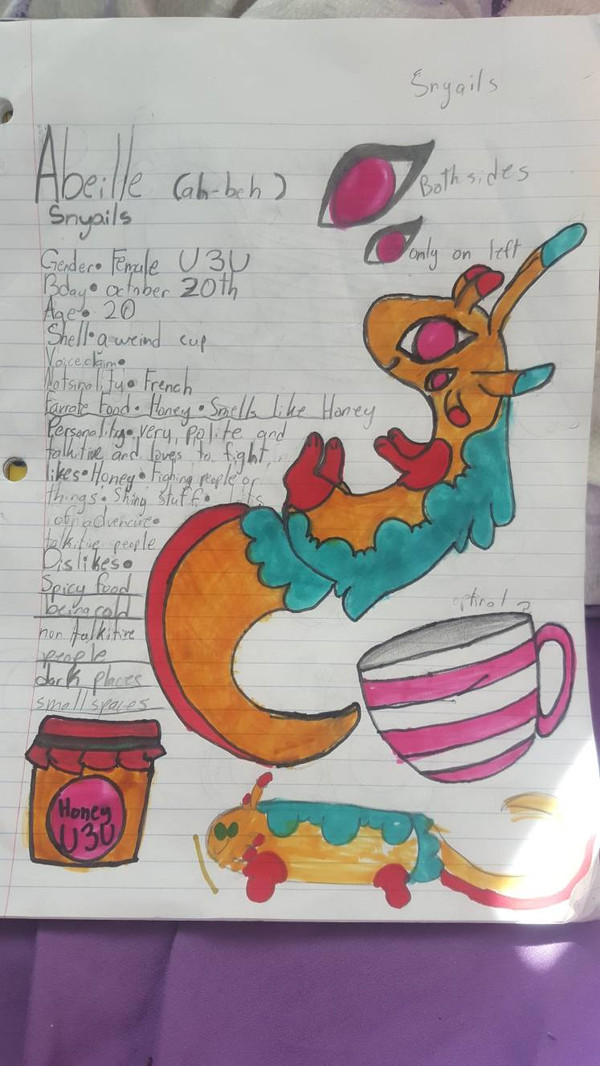 Snyails
Abeille (ah-beh)
Snyails
Both sides
only on left
Gender• Female U3U
Bday• october 20th
Age• 20
Shell• a weird cup
Voiceclaim•
French
Favrote Food• Honey• Smells like Honey
Personality• very, polite and
talkitive and loves to fight,
likes• Honey• Fighing people or
things• Shiny stuff•
of adventure•
talkitive people
Dislikes•
Spicy food
being cold
non talkitive
people
dark places
small spaces
Honey
U3U